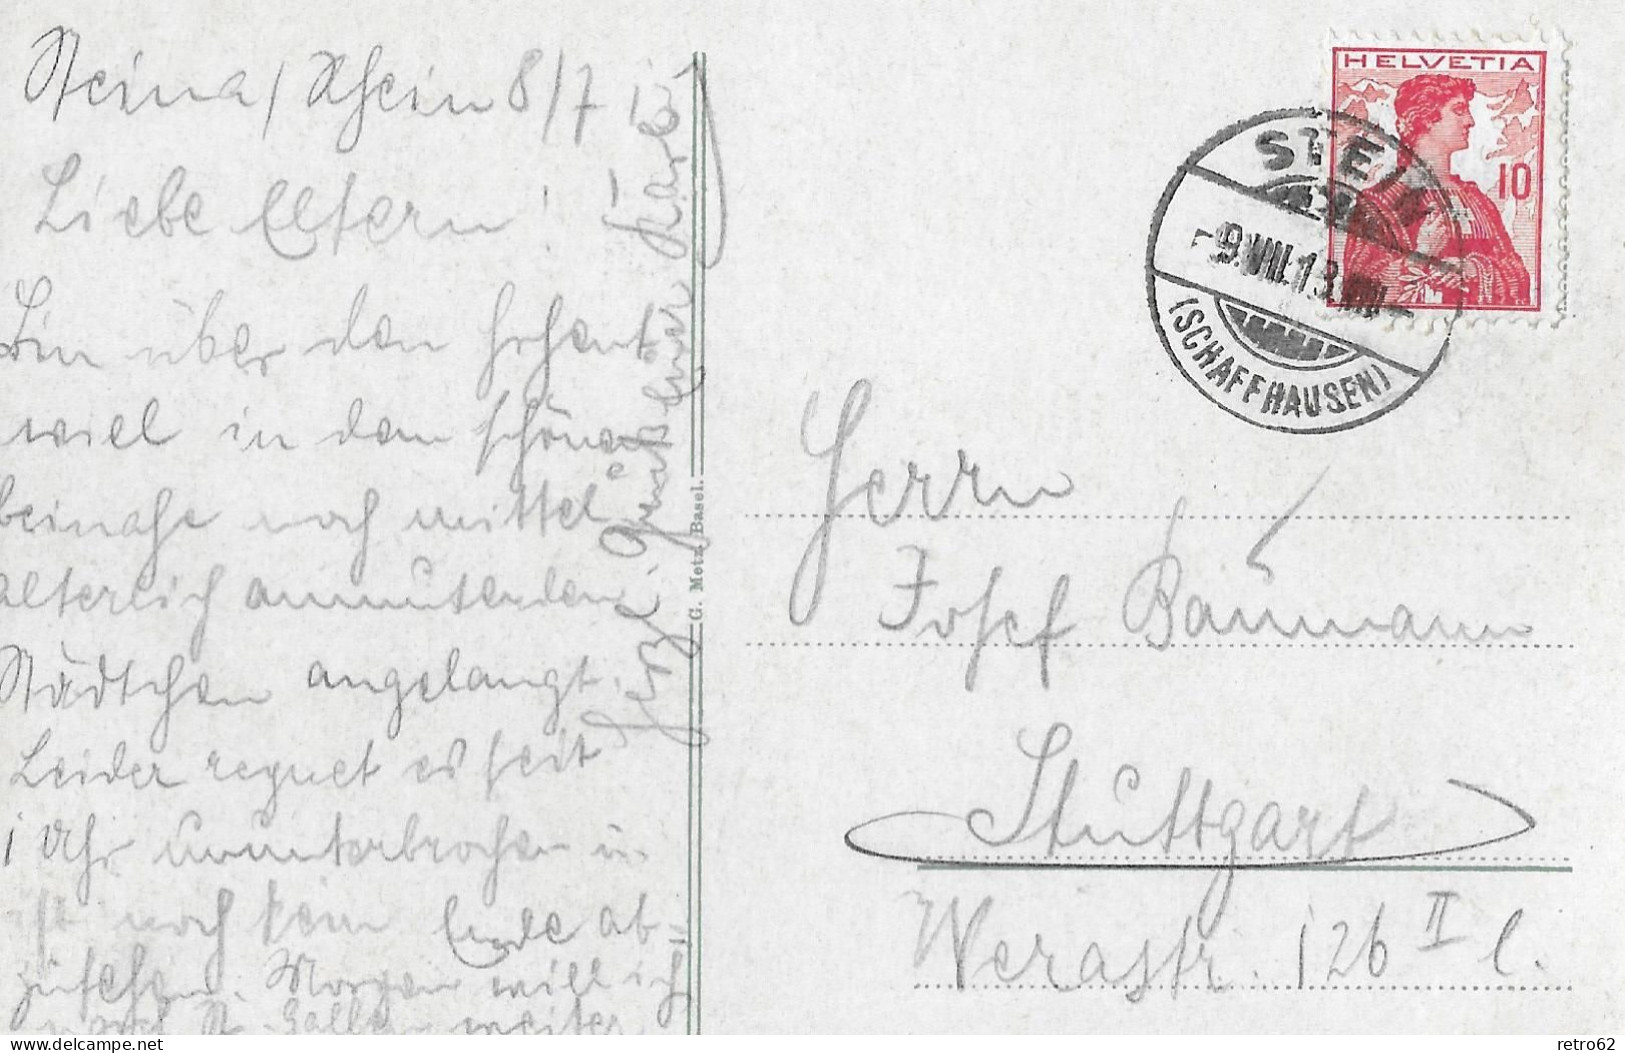 Stein a/Rhein 8/7 13
Liebe Eltern!
Bin über den Hohent
wiel in dem schönen
beinahe noch mittel
alterlich anmutenden
Städtchen angelangt.
Leider regnet es seit
1 Uhr ununterbrochen u.
ist noch kein Ende ab-
zusehen. Morgen will ich
nach St. Gallen weiter.
Herzl. Grüße Euer Karl
G. Metz, Basel.
HELVETIA
10
STEIN
-9.VIII.13.
(SCHAFFHAUSEN)
Herrn
Josef Baumann
Stuttgart
Werastr. 126 II l.
delcampe.net
retro62